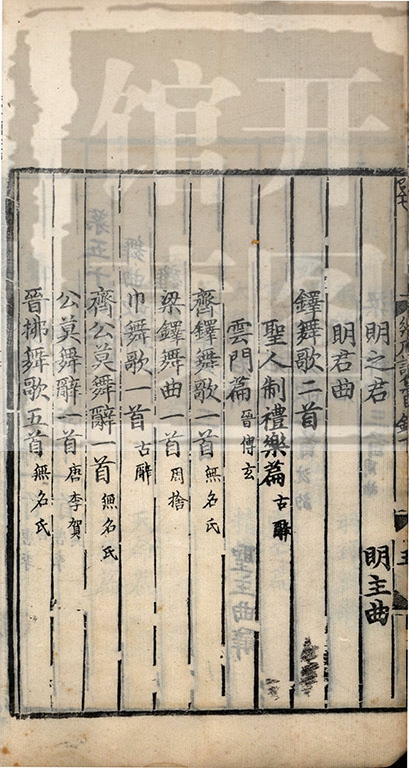 明之君
明主曲
明君曲
鐸舞歌二首
聖人制禮樂篇 古辭
雲門篇 晉傅玄
齊鐸舞歌一首 無名氏
梁鐸舞曲一首 周捨
巾舞歌一首 古辭
齊公莫舞辭一首 無名氏
公莫舞辭一首 唐李賀
晉拂舞歌五首 無名氏